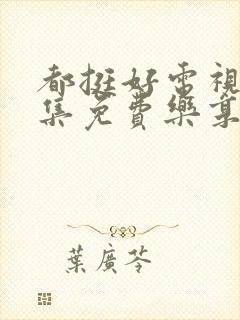 都挺好電視
集免費樂享
葉廣芩